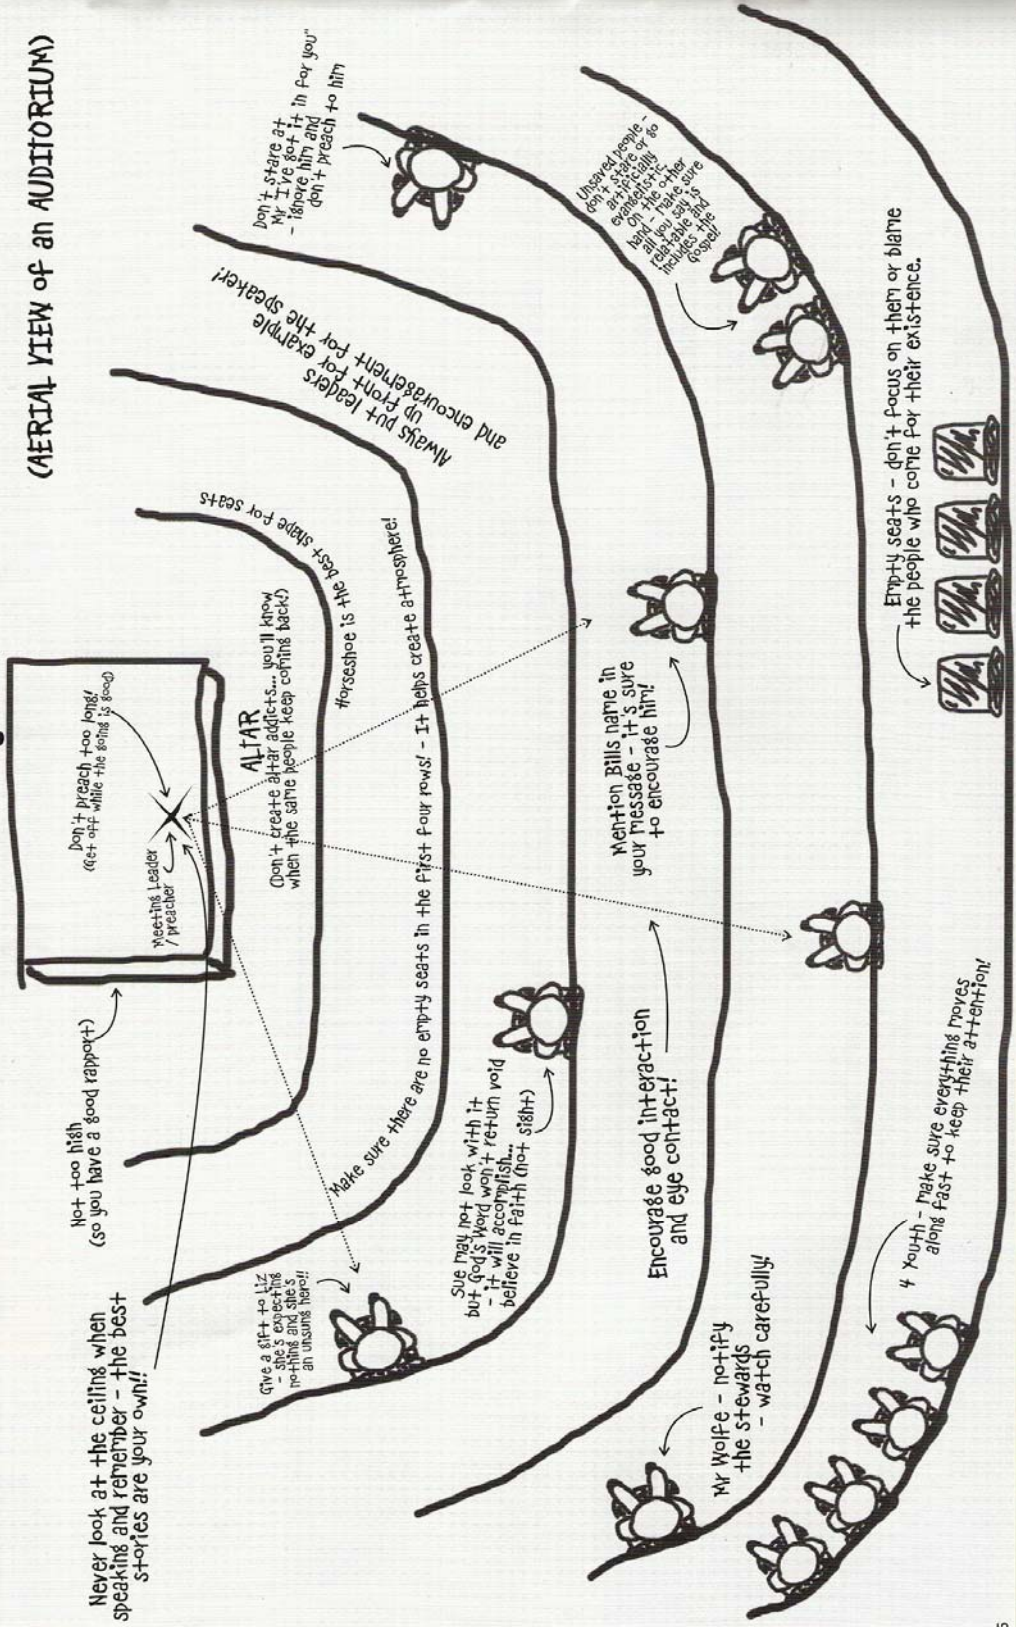 (AERIAL VIEW of an AUDITORIUM)
Never look at the ceiling when
speaking and remember - the best
stories are your own!!
Not too high
(so you have a good rapport)
Don't preach too long!
(Get off while the going is good)
Meeting Leader
/ preacher
ALTAR
(Don't create altar addicts... you'll know
when the same people keep coming back!)
Horseshoe is the best shape for seats
Make sure there are no empty seats in the first four rows! - It helps create atmosphere!
Always put leaders
up front for example
and encouragement for the speaker!
Don't stare at
Mr "I've got it in for you"
- ignore him and
don't preach to him
Give a gift to Liz
- she's expecting
nothing and she's
an unsung hero!!
Sue may not look with it
but God's Word won't return void
- it will accomplish...
believe in faith (not sight)
Encourage good interaction
and eye contact!
Mention Bills name in
your message - it's sure
to encourage him!
Unsaved people -
don't stare or go
artificially
evangelistic.
On the other
hand - make sure
all you say is
relatable and
includes the
Gospel!
Mr Wolfe - notify
the stewards
- watch carefully!
4 Youth - make sure everything moves
along fast to keep their attention!
Empty seats - don't focus on them or blame
the people who come for their existence.